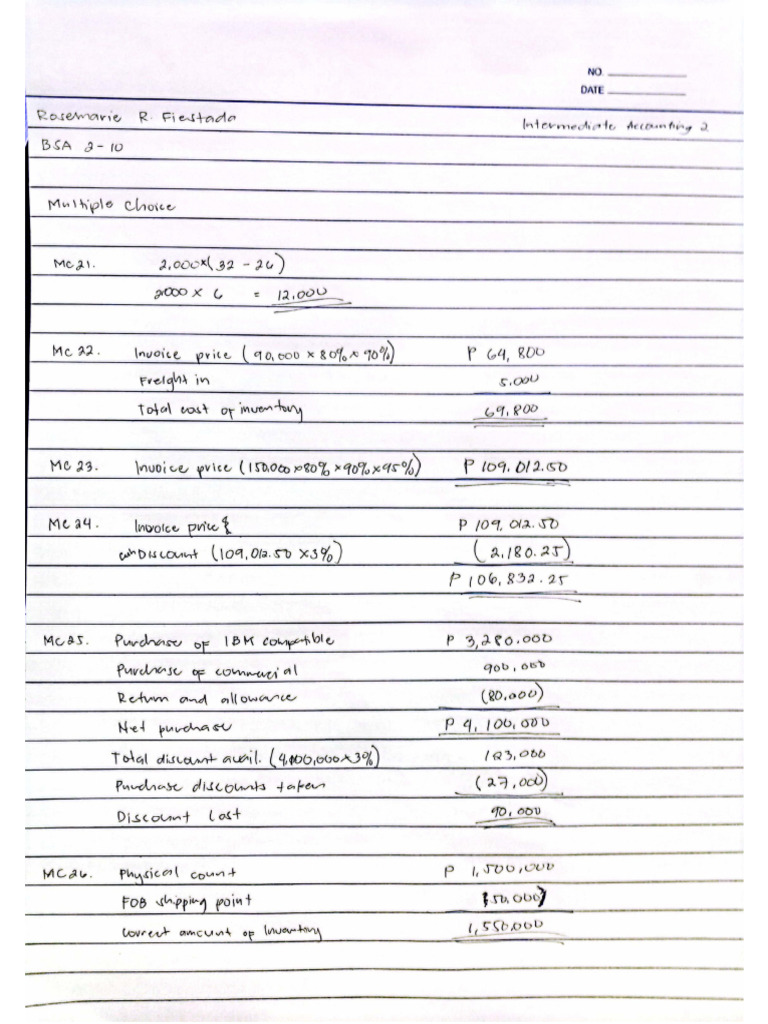 NO.
DATE
Rosemarie R. Fiestada Intermediate Accounting 2
BSA 2-10
Multiple Choice
MC21. 2,000 x (32 - 26)
2000 x 6 = 12,000
MC 22. Invoice price (90,000 x 80% x 90%) P 64,800
Freight in 5,000
Total cost of inventory 69,800
MC 23. Invoice price (150,000 x 80% x 90% x 95%) P 109,012.50
MC 24. Invoice price P 109,012.50
Discount (109,012.50 x 3%) (2,180.25)
P 106,832.25
MC25. Purchase of IBM compatible P 3,280,000
Purchase of commercial 900,000
Return and allowance (80,000)
Net purchase P 4,100,000
Total discount avail. (4,100,000 x 3%) 123,000
Purchase discounts taken (27,000)
Discount lost 90,000
MC26. Physical count P 1,500,000
FOB shipping point 50,000
Correct amount of Inventory 1,550,000